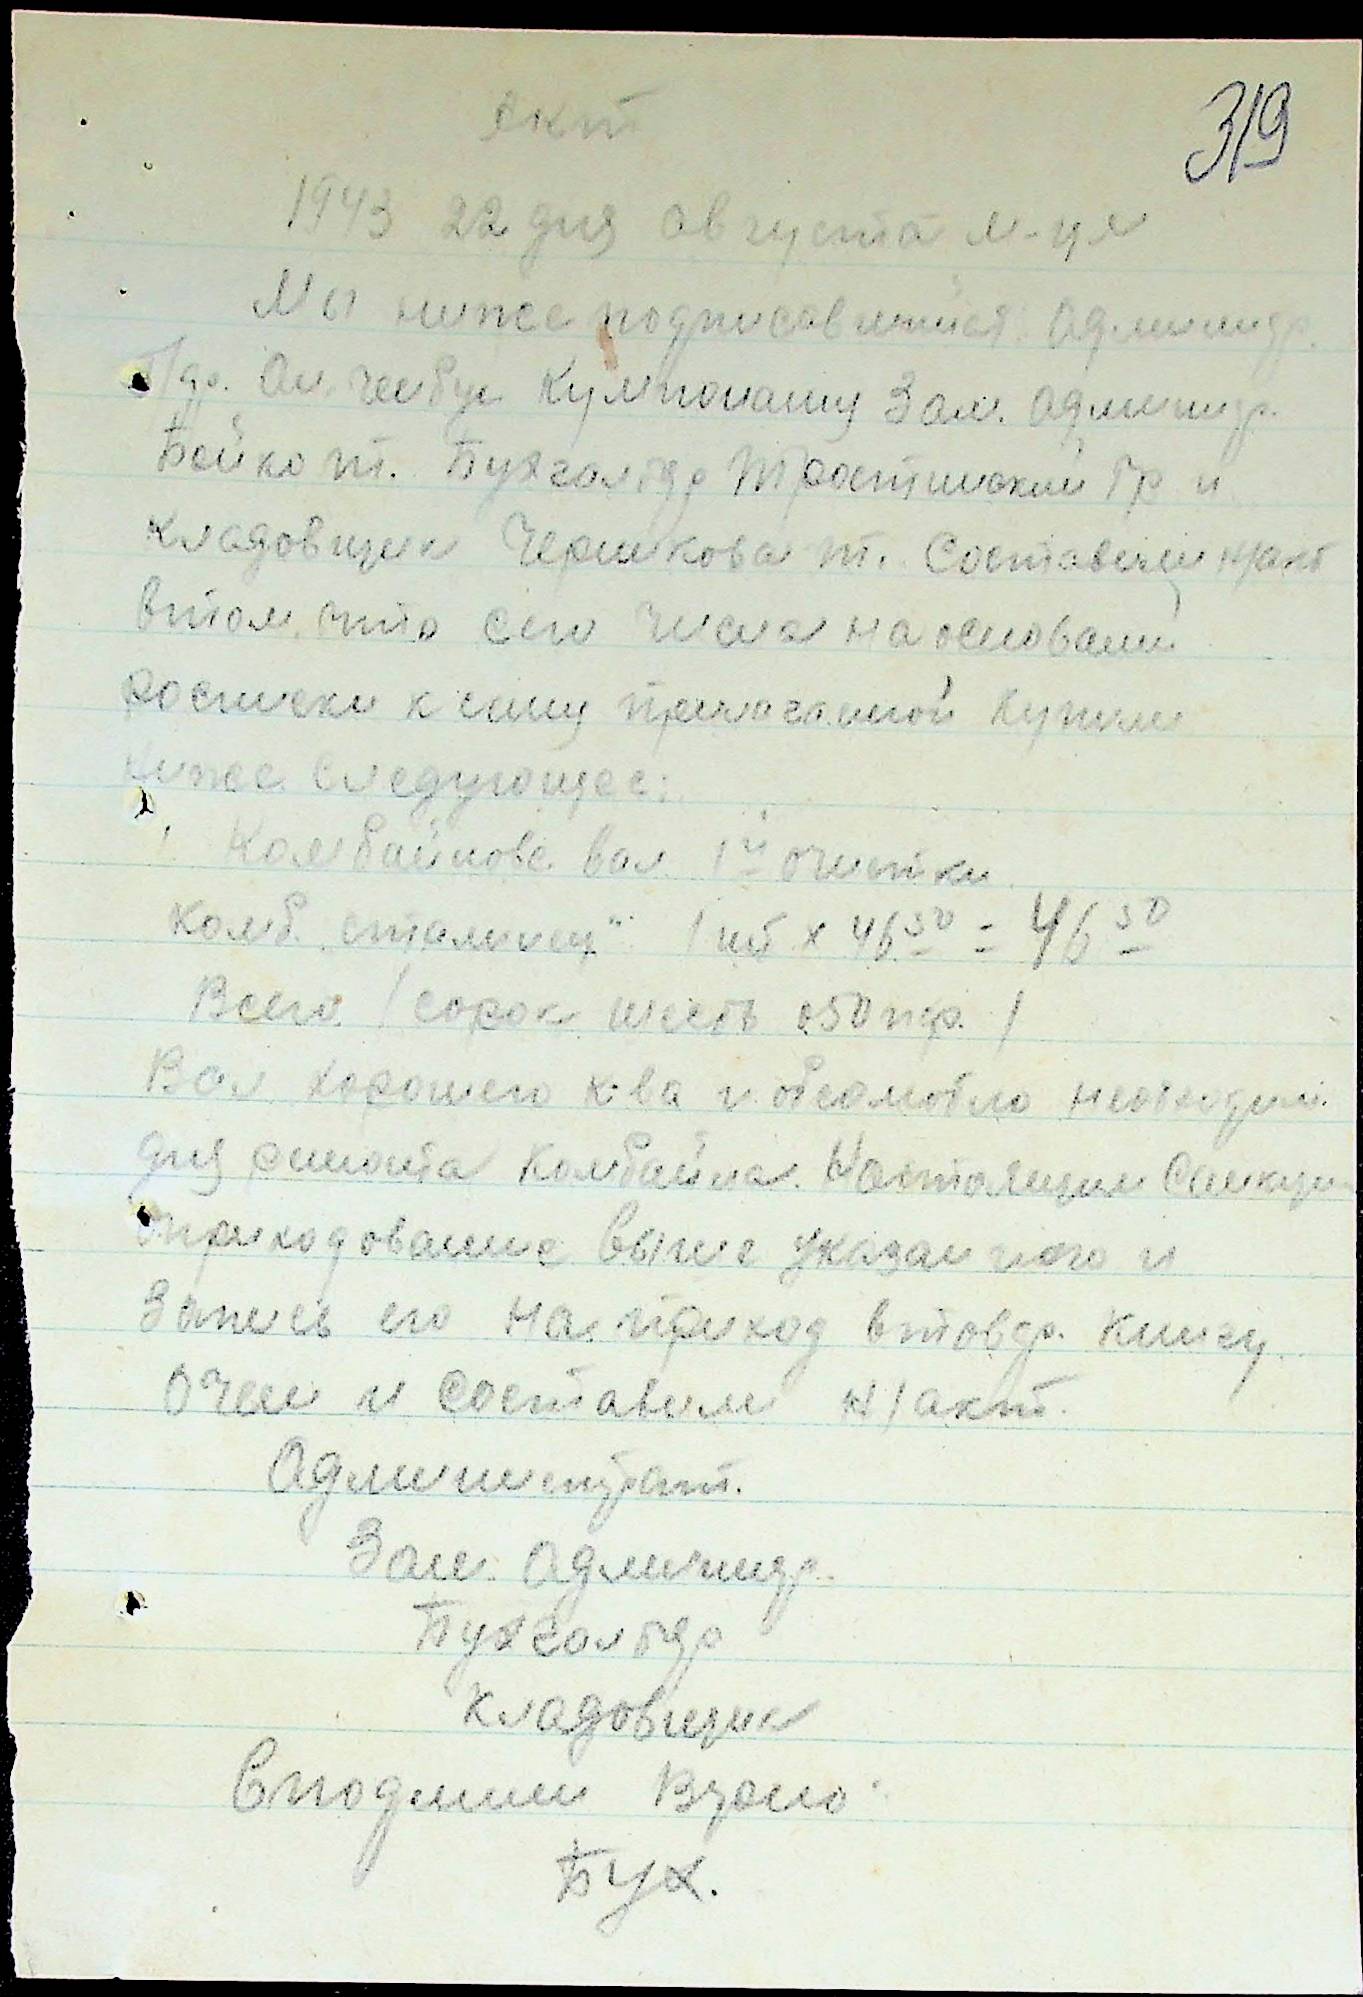 319
Акт
1943 22 дня августа м-ця
Мы ниже подписавшийся Админстр.
Кумпонашу Зам. Админстр.
Бойко т. Бухгалтер Тростинский Гр и
кладовщик Черникова т. Составили н/акт
в том, что сего числа на основани
росписки к сему прилогаимой купили
ниже следующее:
1 Комбайнове вал 1й очистки
комб. "сталинец" 1 шт х 46 50 = 46 50
Всего /сорок шесть 50 пф. /
Вал хорошего к-ва и необходим.
для ремонта Комбайна. Настоящим Санкци
оприходование выше указанного и
Запись его на приход в товар. книгу
О чем и составили н/акт.
Администрат.
Зам. Админстр.
Бухгалтер
кладовщик
С подлиним Верно
Бух.